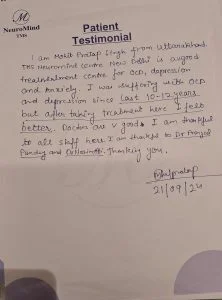 NeuroMind
TMS
Patient
Testimonial
I am Mohit Pratap Singh from Uttarakhand.
TMS Neuromind centre New Delhi is a good
treatment centre for OCD, depression
and Anxiety. I was suffering with OCD
and depression since last 10-12 years
but after taking treatment here I feel
better. Doctor are v good. I am thankful
to all staff here. I am thankful to Dr Pranjal
Pandey and Thanking you.
21/09/24